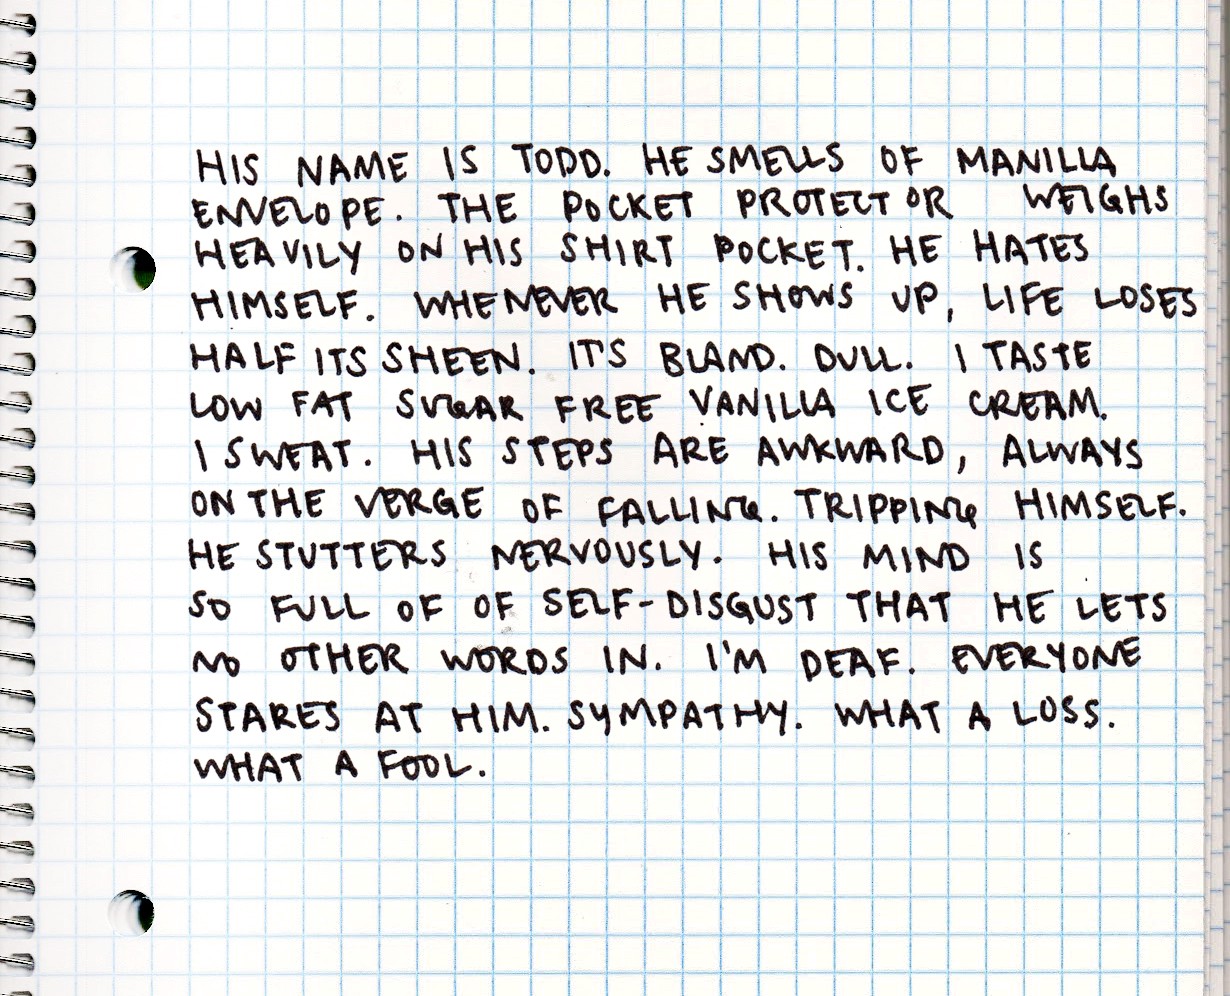 HIS NAME IS TODD. HE SMELLS OF MANILLA
ENVELOPE. THE POCKET PROTECTOR WEIGHS
HEAVILY ON HIS SHIRT POCKET. HE HATES
HIMSELF. WHENEVER HE SHOWS UP, LIFE LOSES
HALF ITS SHEEN. IT'S BLAND. DULL. I TASTE
LOW FAT SUGAR FREE VANILLA ICE CREAM.
I SWEAT. HIS STEPS ARE AWKWARD, ALWAYS
ON THE VERGE OF FALLING. TRIPPING HIMSELF.
HE STUTTERS NERVOUSLY. HIS MIND IS
SO FULL OF OF SELF-DISGUST THAT HE LETS
NO OTHER WORDS IN. I'M DEAF. EVERYONE
STARES AT HIM. SYMPATHY. WHAT A LOSS.
WHAT A FOOL.